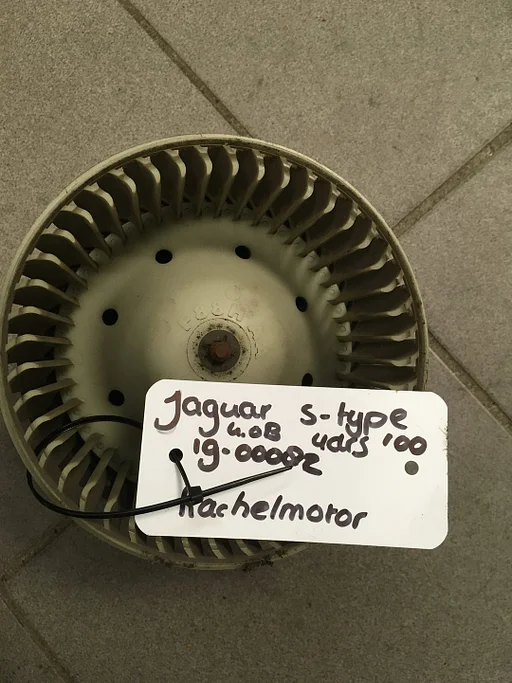 Jaguar s-type
4.0B 4drs '00
19-00002
Kachelmotor